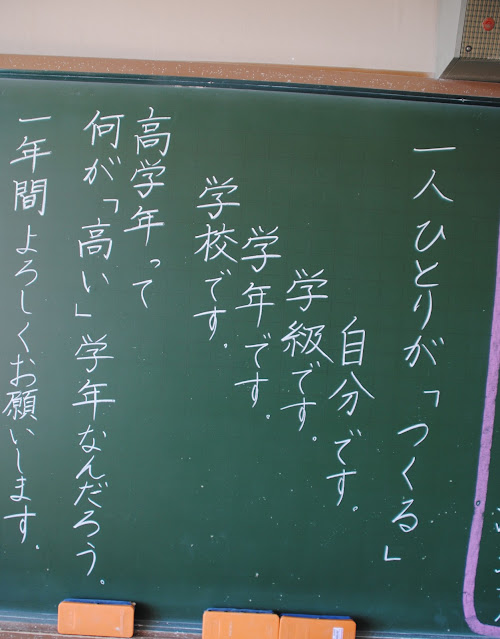 一人ひとりが「つくる」
自分です。
学級です。
学年です。
学校です。
高学年って
何が「高い」学年なんだろう。
一年間よろしくお願いします。